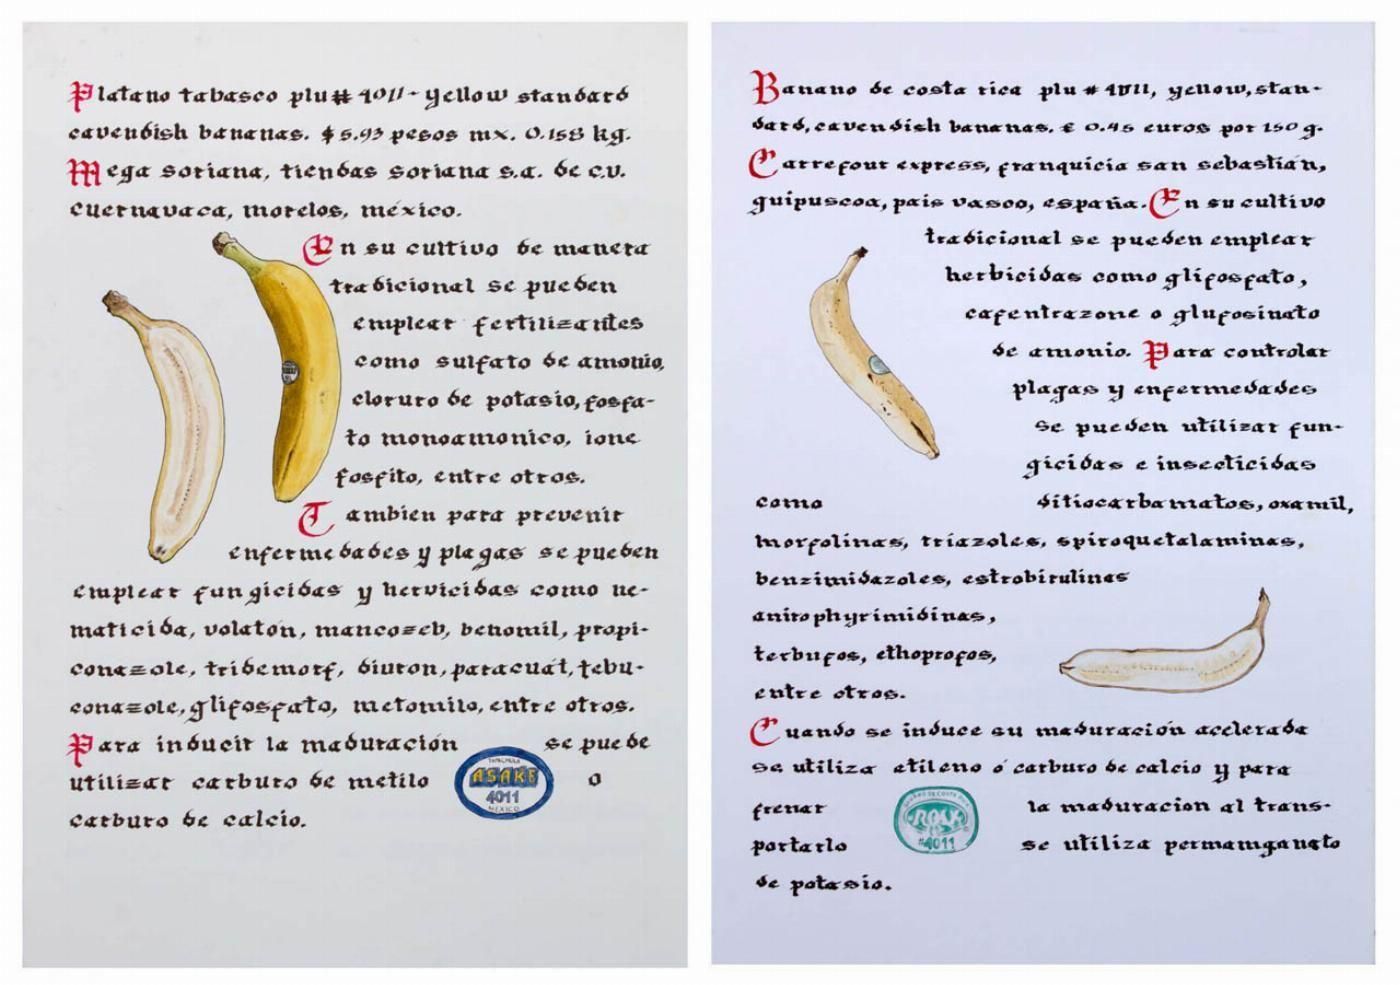 Platano tabasco plu# 4011- yellow standard
cavendish bananas. $ 5.93 pesos mx. 0.158 kg.
Mega soriana, tiendas soriana s.a. de c.v.
cuernavaca, morelos, méxico.
En su cultivo de manera
tradicional se pueden
emplear fertilizantes
como sulfato de amonio,
cloruro de potasio, fosfa-
to monoamonico, ione
fosfito, entre otros.
Tambien para prevenir
enfermedades y plagas se pueden
emplear fungicidas y hervicidas como ne-
maticida, volatón, mancozeb, benomil, propi-
conazole, tridemorf, diuron, paracuat, tebu-
conazole, glifosfato, metomilo, entre otros.
Para inducir la maduración se puede
utilizar carburo de metilo o
carburo de calcio.
TAPACHULA
ASAKE
4011
MÉXICO
Banano de costa rica plu # 4011, yellow, stan-
dard, cavendish bananas. € 0.45 euros por 150 g.
Carrefour express, franquicia san sebastián,
guipuscoa, país vasco, españa. En su cultivo
tradicional se pueden emplear
herbicidas como glifosfato,
cafentrazone o glufosinato
de amonio. Para controlar
plagas y enfermedades
se pueden utilizar fun-
gicidas e insecticidas
como ditiocarbamatos, oxamil,
morfolinas, triazoles, spiroquetalaminas,
benzimidazoles, estrobirulinas
anirophyrimidinas,
terbufos, ethoprofos,
entre otros.
Cuando se induce su maduración acelerada
se utiliza etileno ó carburo de calcio y para
frenar la maduracion al trans-
portarlo se utiliza permamganato
de potasio.
COSTA RICA
ROSY
#4011